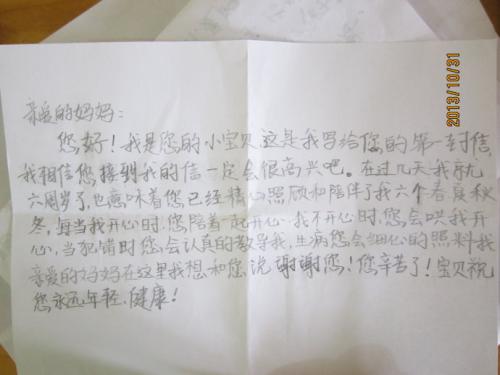 2013/10/31
亲爱的妈妈：
您好！我是您的小宝贝这是我写给您的第一封信
我相信您接到我的信一定会很高兴吧。在过几天我就
六周岁了，也意味着您已经精心照顾和陪伴了我六个春夏秋
冬，每当我开心时，您陪着一起开心，我不开心时，您会哄我开
心，当犯错时您会认真的教导我，生病您会细心的照料我
亲爱的妈妈在这里我想和您说谢谢您！您辛苦了！宝贝祝
您永远年轻、健康！